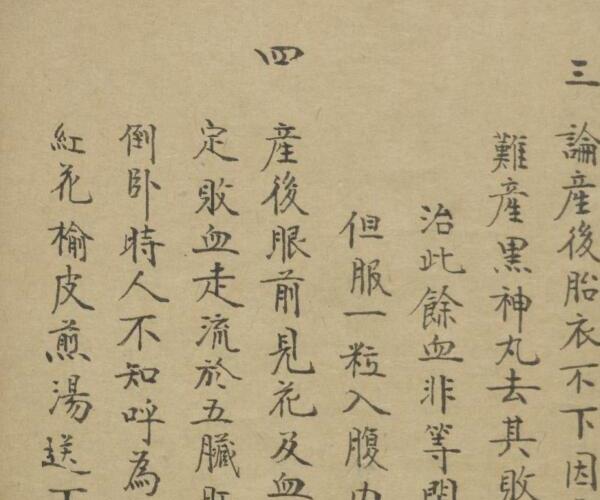 三 論產後胎衣不下因
難產黑神丸去其敗
治此餘血非等閒
但服一粒入腹内
四 產後眼前見花及血
定敗血走流於五臟肝
倒卧時人不知呼為
紅花榆皮煎湯送下